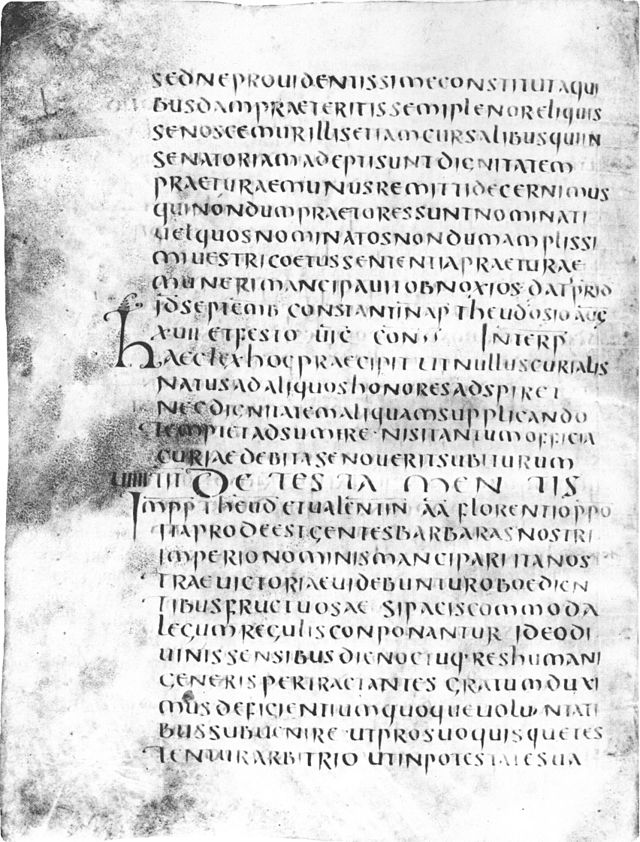 SEDNEPROUIDENTISSIMECONSTITUTAQUI
BUSDAMPRAETERITISSEMIPLENORELIQUIS
SENOSCEMURILLISETIAMCURSALIBUSQUIIN
SENATORIAMADEPTISUNTDIGNITATEM
PRAETURAEMUNUSREMITTIDECERNIMUS
QUINONDUMPRAETORESSUNTNOMINATI
UELQUOSNOMINATOSNONDUMAMPLISSI
MIUESTRICOETUSSENTENTIAPRAETURAE
MUNERIMANCIPAUITOBNOXIOS·DATPRID
IDSEPTEMB CONSTANTINAP THEUDOSIO AUG
XUIII ETFESTO UIC CONSS INTERP
HAECLEXHOCPRAECIPIT UTNULLUSCURIALIS
NATUSADALIQUOSHONORESADSPIRET
NECDIGNITATEMALIQUAMSUPPLICANDO
TEMPTETADSUMERE·NISITANTUMOFFICIA
CURIAEDEBITASENOUERITSUBITURUM
TIT DE TESTAMENTIS
IMPP THEUD ETUALENTIN AA FLORENTIO PPO
ITAPRODEESTGENTESBARBARASNOSTRI
IMPERIONOMINISMANCIPARI ITANOS
TRAEUICTORIAEUIDEBUNTUROBOEDIEN
TIBUSFRUCTUOSAE SIPACISCOMMODA
LEGUMREGULISCONPONANTUR IDEODI
UINISSENSIBUSDIENOCTUQ·RESHUMANI
GENERIS PERTRACTANTES GRATUMDUXI
MUSDEFICIENTIUMQUOQUEUOLUNTATI
BUSSUBUENIRE UTPROSUOQUISQUETES
TENTURARBITRIO UTINPOTESTATESUA